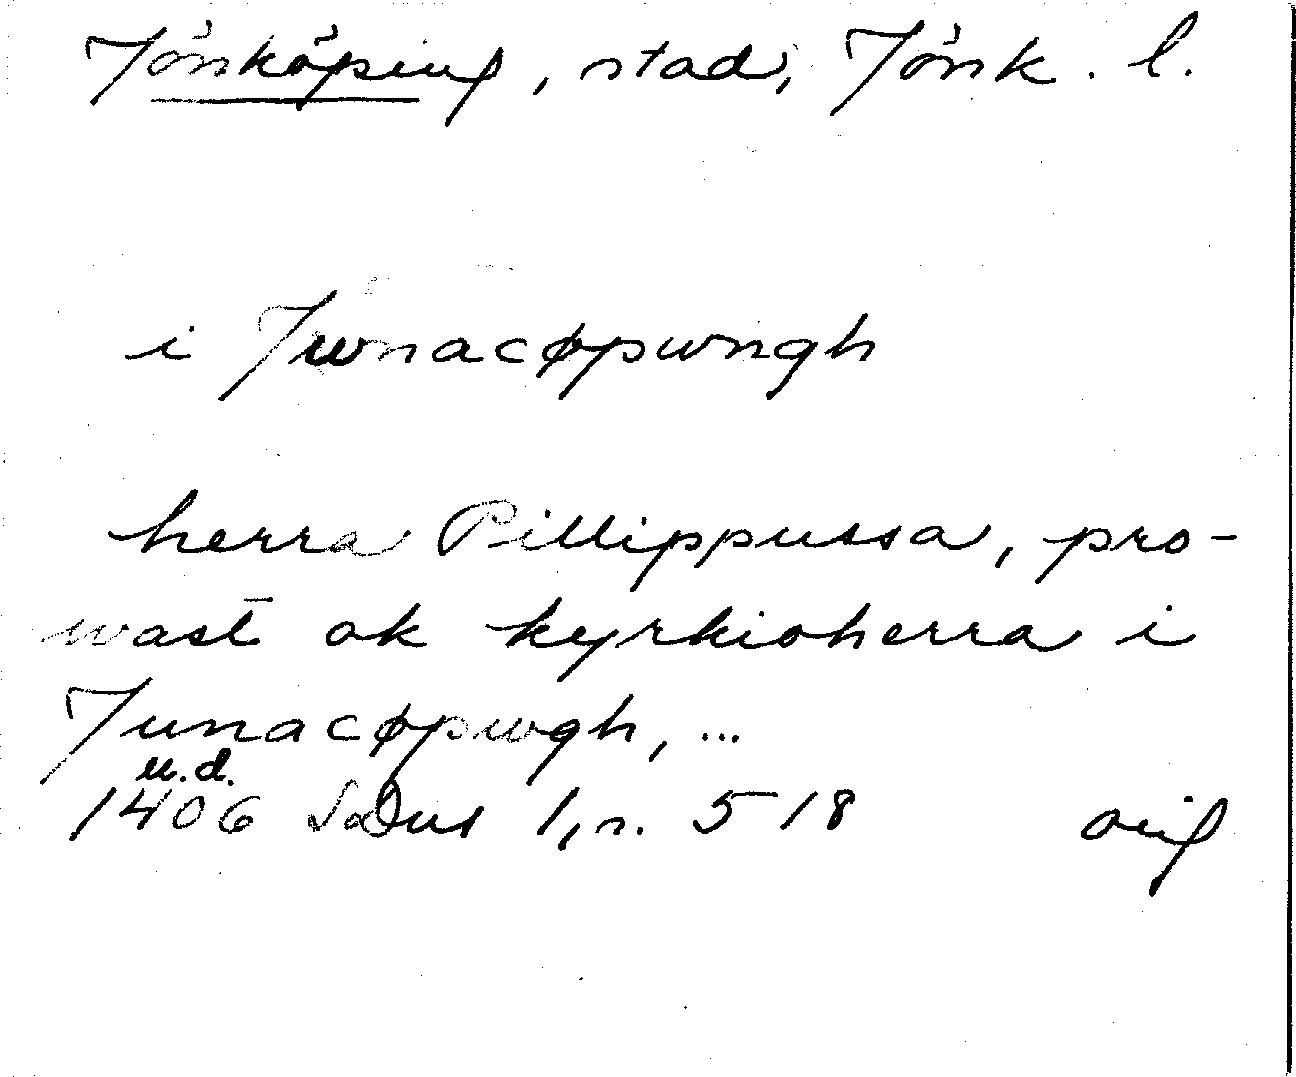 Jönköping, stad, Jönk. l.
i Jwnacøpwngh
herra Pillippussa, pro-
wast ok kyrkioherra i
Junacøpwgh, ...
u.d.
1406 SDns 1, n. 518 orig